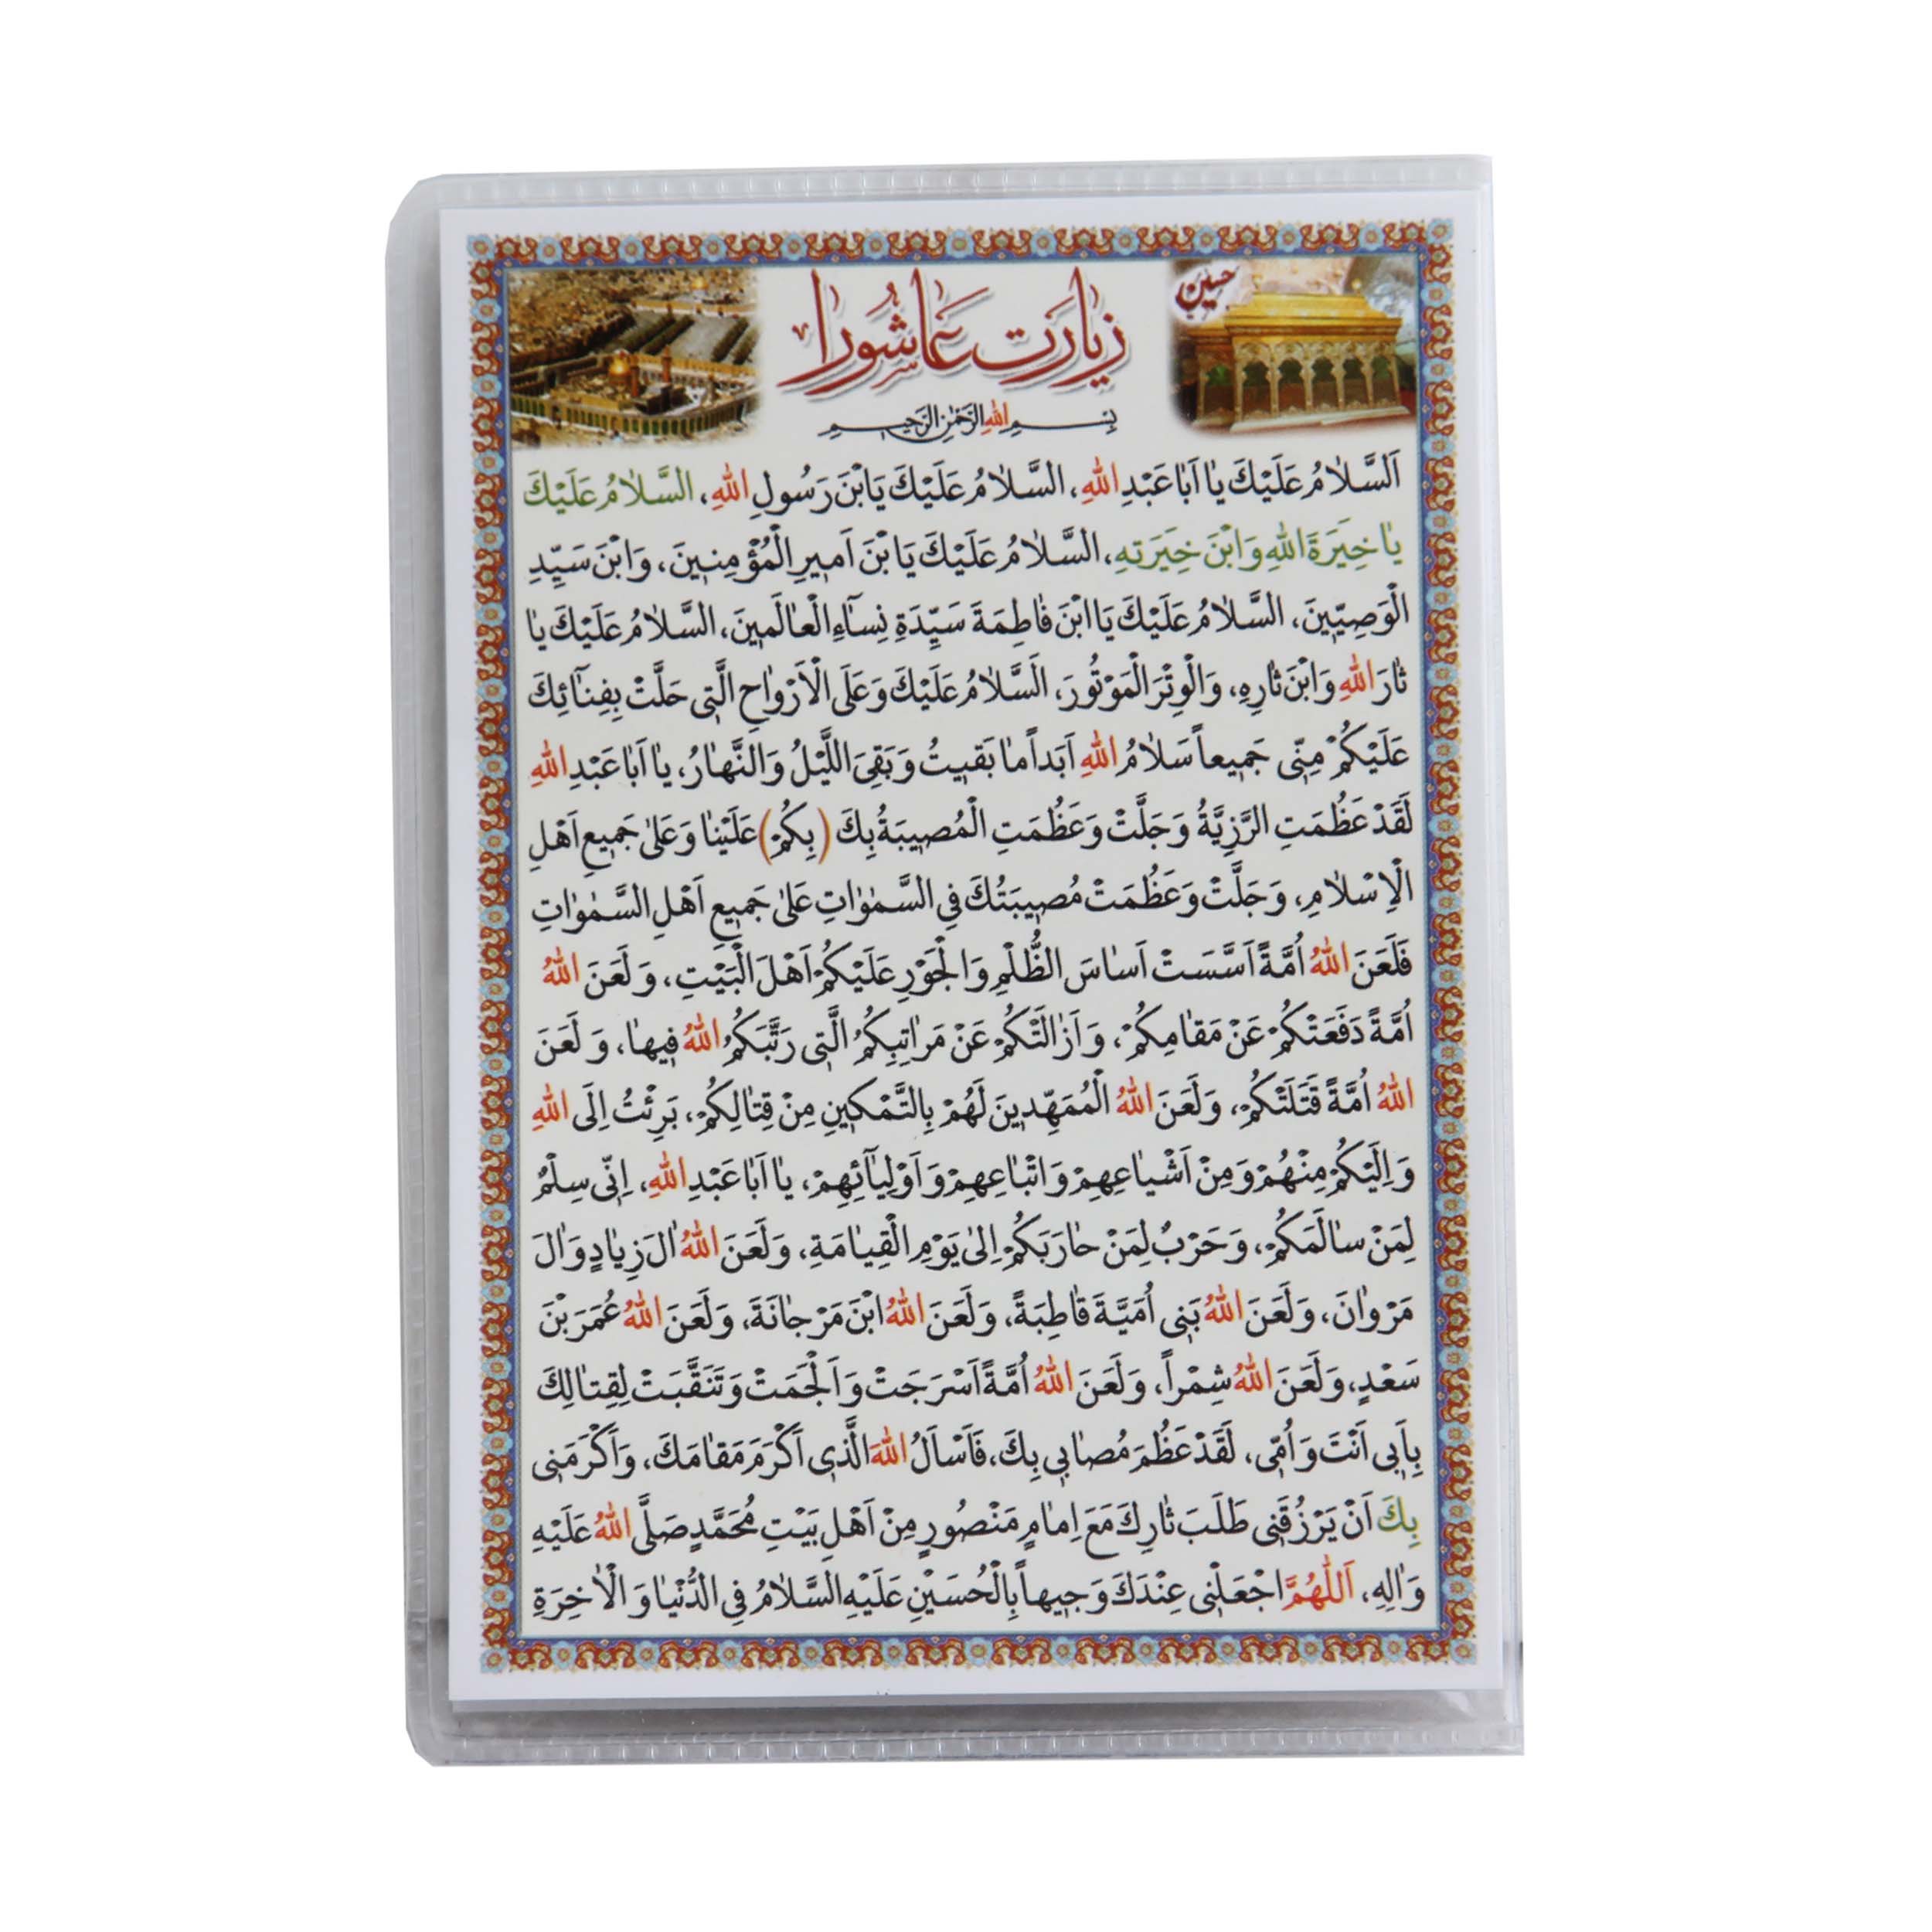 حسین
زیارت عاشورا
بِسْمِ اللهِ الرَّحْمٰنِ الرَّحیمِ
اَلسَّلاٰمُ عَلَيْكَ يٰا اَبٰا عَبْدِ اللهِ، اَلسَّلاٰمُ عَلَيْكَ يَابْنَ رَسُولِ اللهِ، اَلسَّلاٰمُ عَلَيْكَ
يٰا خِيَرَةَ اللهِ وَابْنَ خِيَرَتِهِ، اَلسَّلاٰمُ عَلَيْكَ يَابْنَ اَميرِ الْمُؤْمِنينَ، وَابْنَ سَيِّدِ
الْوَصِيّينَ، اَلسَّلاٰمُ عَلَيْكَ يَا ابْنَ فٰاطِمَةَ سَيِّدَةِ نِسٰاءِ الْعٰالَمينَ، اَلسَّلاٰمُ عَلَيْكَ يٰا
ثٰارَ اللهِ وَابْنَ ثٰارِهِ، وَالْوِتْرَ الْمَوْتُورَ، اَلسَّلاٰمُ عَلَيْكَ وَعَلَى الْاَرْوٰاحِ الَّتى حَلَّتْ بِفِنٰائِكَ
عَلَيْكُمْ مِنّى جَميعاً سَلاٰمُ اللهِ اَبَداً مٰا بَقيتُ وَبَقِىَ اللَّيْلُ وَالنَّهٰارُ، يٰا اَبٰا عَبْدِ اللهِ
لَقَدْ عَظُمَتِ الرَّزِيَّةُ وَجَلَّتْ وَعَظُمَتِ الْمُصيبَةُ بِكَ (بِكُمْ) عَلَيْنٰا وَعَلىٰ جَميعِ اَهْلِ
الْاِسْلاٰمِ، وَجَلَّتْ وَعَظُمَتْ مُصيبَتُكَ فِى السَّمٰوٰاتِ عَلىٰ جَميعِ اَهْلِ السَّمٰوٰاتِ
فَلَعَنَ اللهُ اُمَّةً اَسَّسَتْ اَسٰاسَ الظُّلْمِ وَالْجَوْرِ عَلَيْكُمْ اَهْلَ الْبَيْتِ، وَلَعَنَ اللهُ
اُمَّةً دَفَعَتْكُمْ عَنْ مَقٰامِكُمْ، وَاَزٰالَتْكُمْ عَنْ مَرٰاتِبِكُمُ الَّتى رَتَّبَكُمُ اللهُ فيهٰا، وَلَعَنَ
اللهُ اُمَّةً قَتَلَتْكُمْ، وَلَعَنَ اللهُ الْمُمَهِّدينَ لَهُمْ بِالتَّمْكينِ مِنْ قِتٰالِكُمْ، بَرِئْتُ اِلَى اللهِ
وَاِلَيْكُمْ مِنْهُمْ وَمِنْ اَشْيٰاعِهِمْ وَاَتْبٰاعِهِمْ وَاَوْلِيٰائِهِمْ، يٰا اَبٰا عَبْدِ اللهِ، اِنّى سِلْمٌ
لِمَنْ سٰالَمَكُمْ، وَحَرْبٌ لِمَنْ حٰارَبَكُمْ اِلىٰ يَوْمِ الْقِيٰامَةِ، وَلَعَنَ اللهُ اٰلَ زِيٰادٍ وَاٰلَ
مَرْوٰانَ، وَلَعَنَ اللهُ بَنى اُمَيَّةَ قٰاطِبَةً، وَلَعَنَ اللهُ ابْنَ مَرْجٰانَةَ، وَلَعَنَ اللهُ عُمَرَ بْنَ
سَعْدٍ، وَلَعَنَ اللهُ شِمْراً، وَلَعَنَ اللهُ اُمَّةً اَسْرَجَتْ وَاَلْجَمَتْ وَتَنَقَّبَتْ لِقِتٰالِكَ
بِاَبى اَنْتَ وَاُمّى، لَقَدْ عَظُمَ مُصٰابى بِكَ، فَاَسْاَلُ اللهَ الَّذى اَكْرَمَ مَقٰامَكَ، وَاَكْرَمَنى
بِكَ اَنْ يَرْزُقَنى طَلَبَ ثٰارِكَ مَعَ اِمٰامٍ مَنْصُورٍ مِنْ اَهْلِ بَيْتِ مُحَمَّدٍ صَلَّى اللهُ عَلَيْهِ
وَاٰلِهِ، اَللّٰهُمَّ اجْعَلْنى عِنْدَكَ وَجيهاً بِالْحُسَيْنِ عَلَيْهِ السَّلاٰمُ فِى الدُّنْيٰا وَالْاٰخِرَةِ